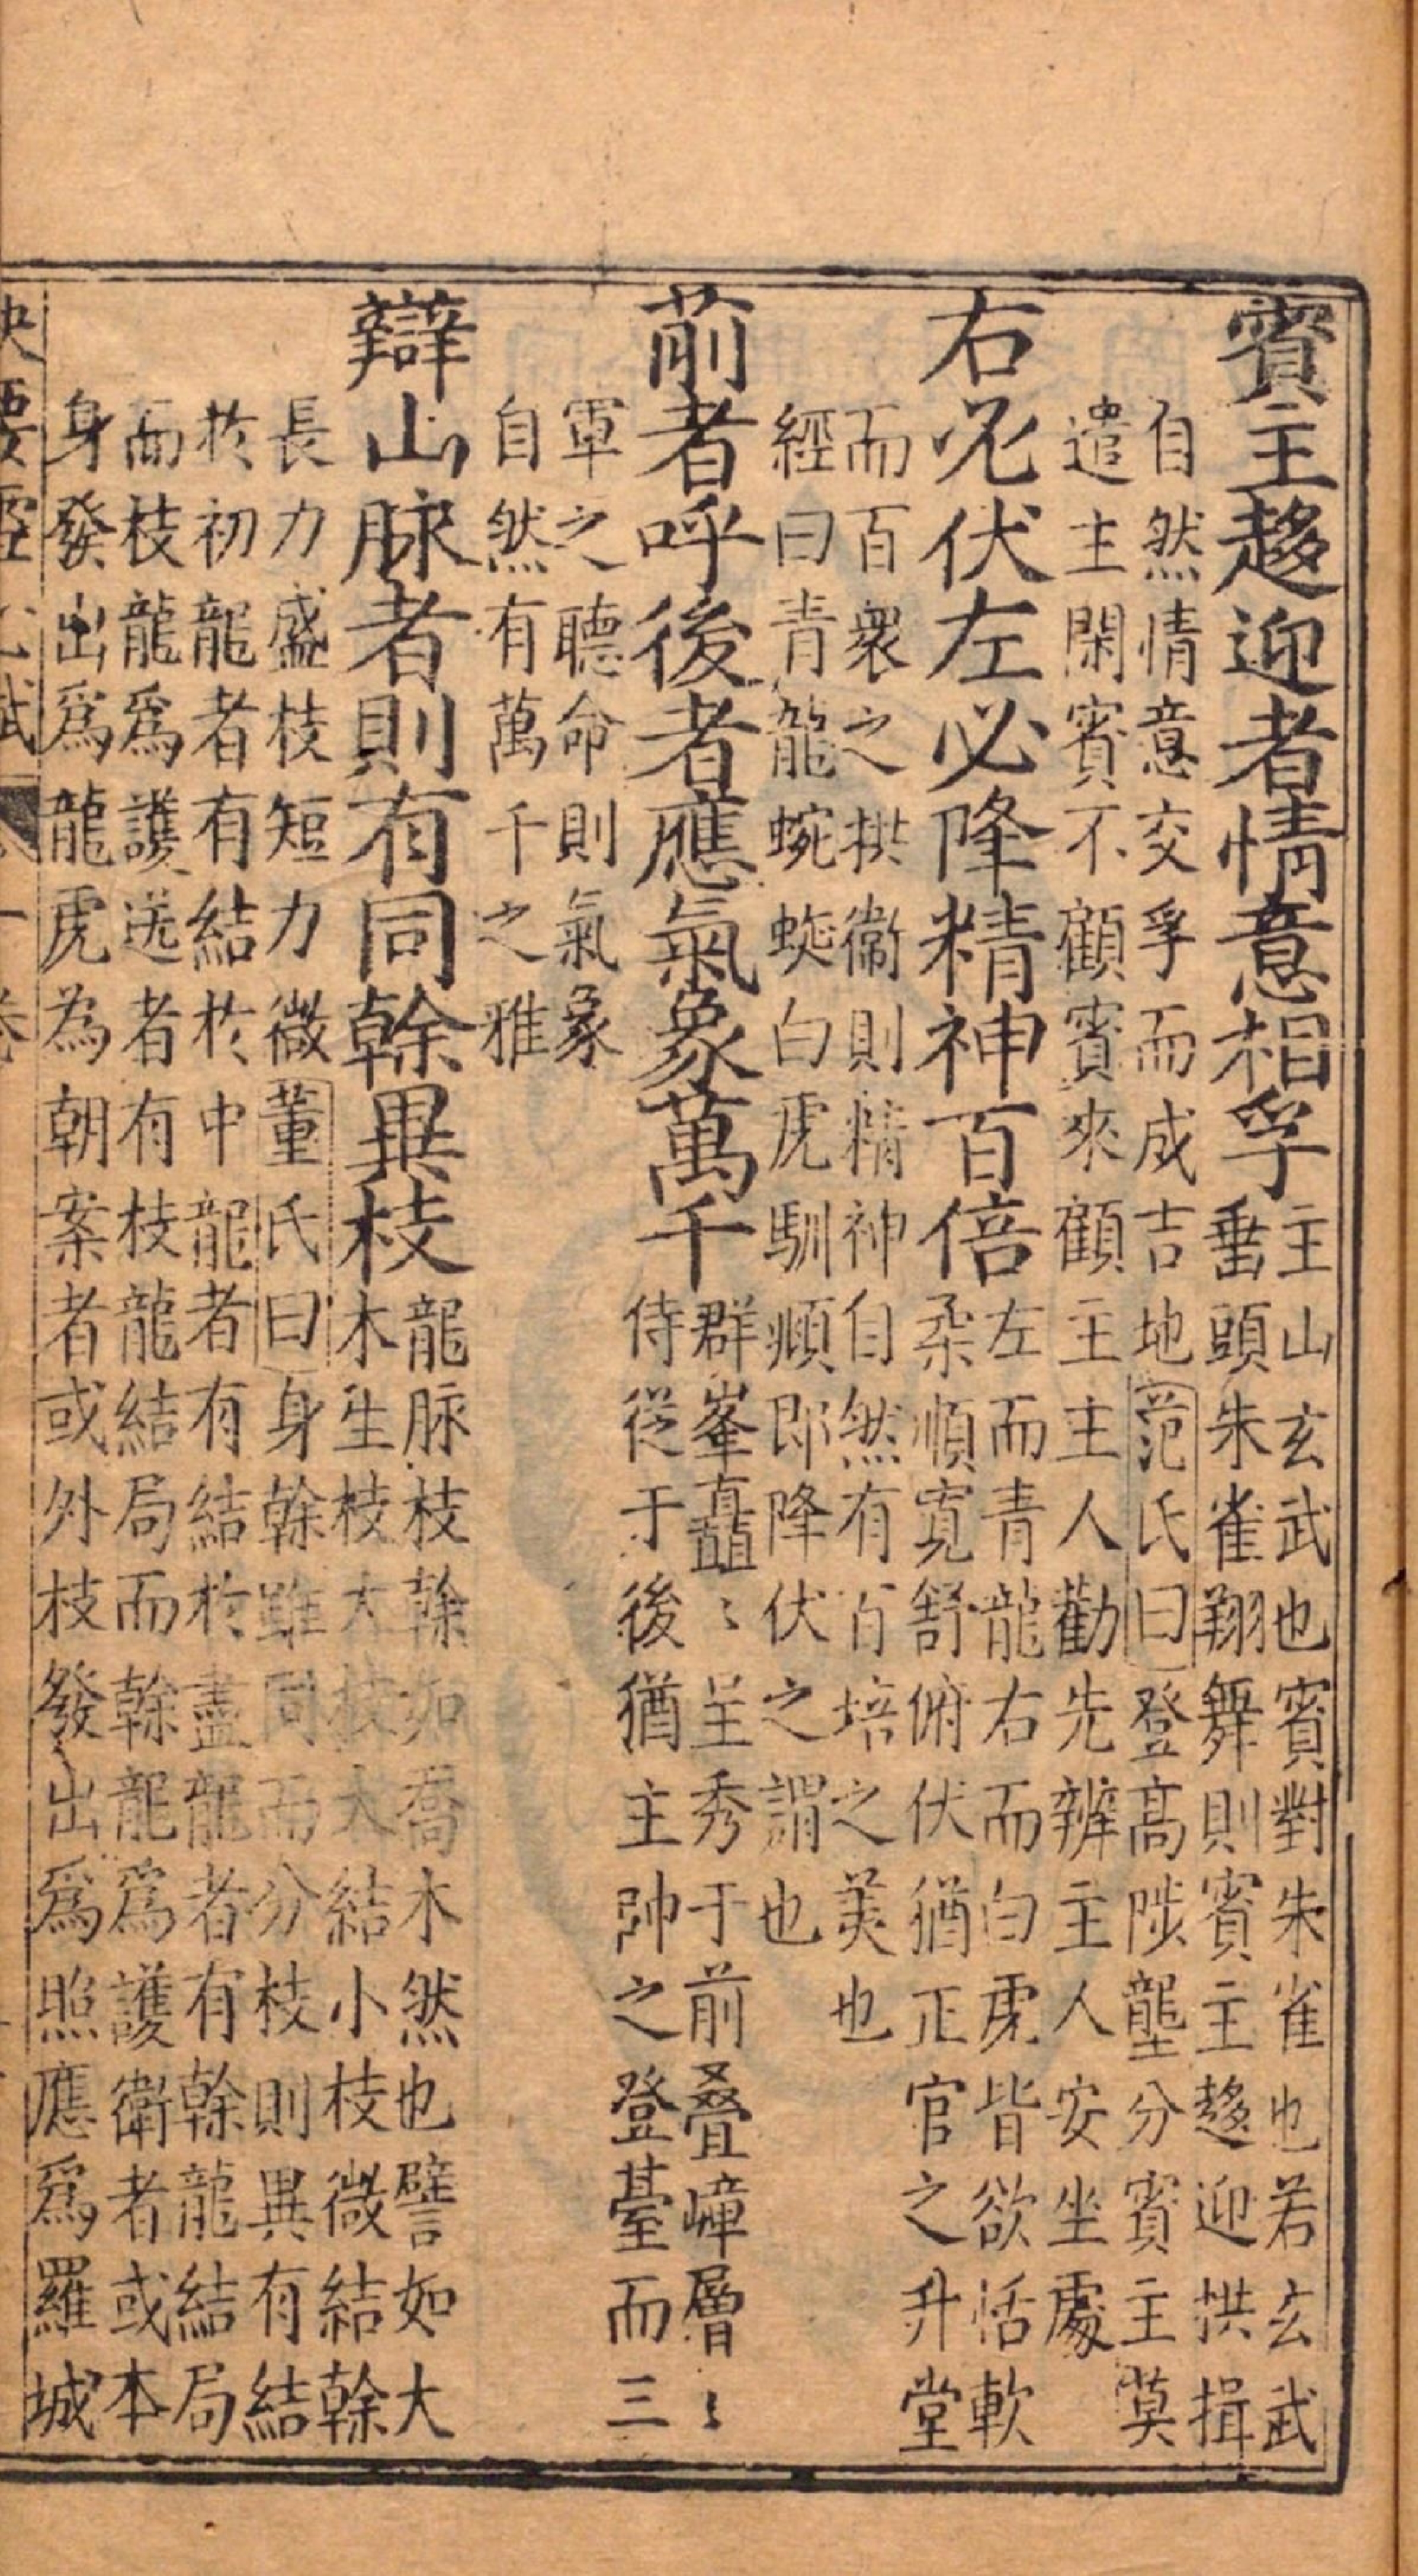 賓主趍迎者情意相孚
主山玄武也賓對朱雀也若玄武
垂頭朱雀翔舞則賓主趍迎拱揖
自然情意交孚而成吉地范氏曰登高陟壟分賓主莫
遣主閑賓不顧賓來顧主主人勸先辨主人安坐處
右必伏左必降精神百倍
左而青龍右而白虎皆欲恬軟
柔順寬舒俯伏猶正官之升堂
而百衆之拱衞則精神自然有百培之美也
經曰青龍蜿蜒白虎馴頫即降伏之謂也
前者呼後者應氣象萬千
群峯矗〻呈秀于前叠嶂層〻
侍從于後猶主帥之登臺而三
軍之聽命則氣象
自然有萬千之雅
辯山脉者則有同榦異枝
龍脉枝榦如喬木然也譬如大
木生枝大枝大結小枝微結榦
長力盛枝短力微董氏曰身榦雖同而分枝則異有結
於初龍者有結於中龍者有結於盡龍者有榦龍結局
而枝龍爲護送者有枝龍結局而榦龍爲護衛者或本
身發出爲龍虎為朝案者或外枝發出爲照應爲羅城